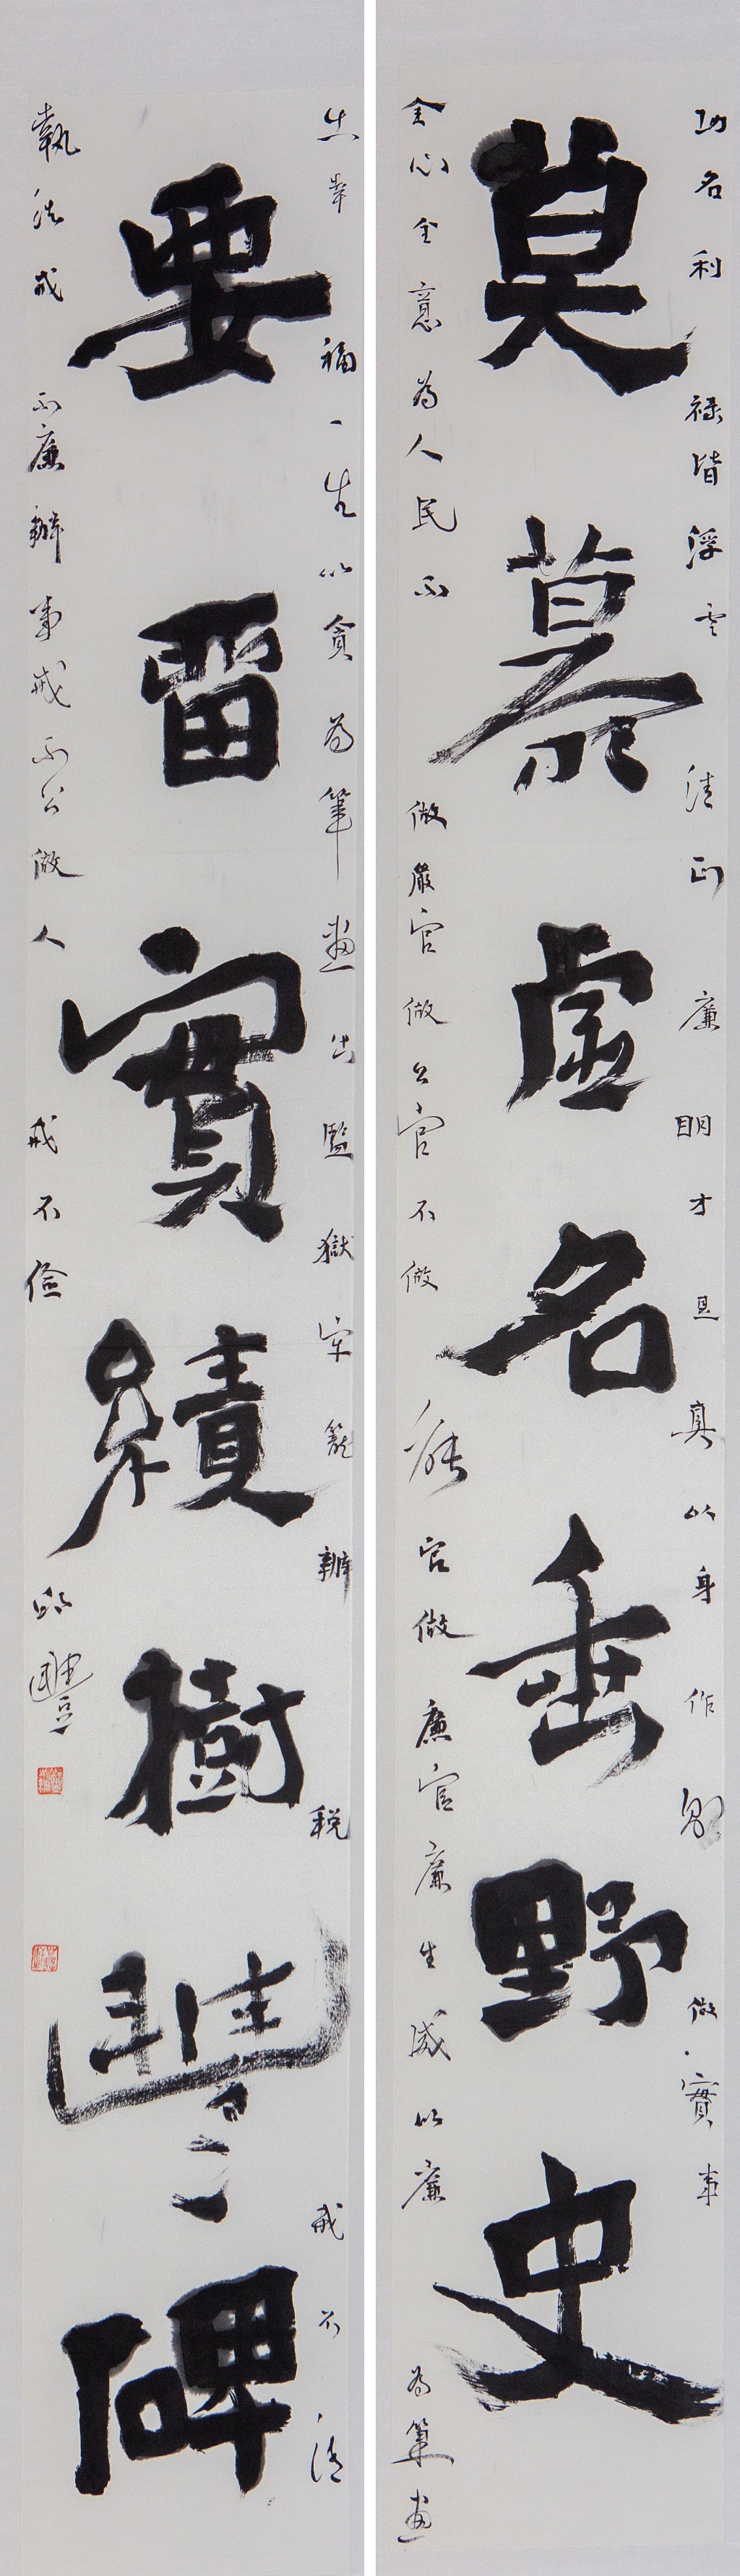 功名利祿皆浮雲清正廉明才是真以身作則做實事
莫慕虛名垂野史
全心全意為人民不做嚴官做公官不做官做廉官廉生威以廉為筆畫
出幸福一生以貪為筆畫出監獄牢籠辦稅戒不清
要留實績樹豐碑
執法戒不廉辦事戒不公做人戒不儉邱豐